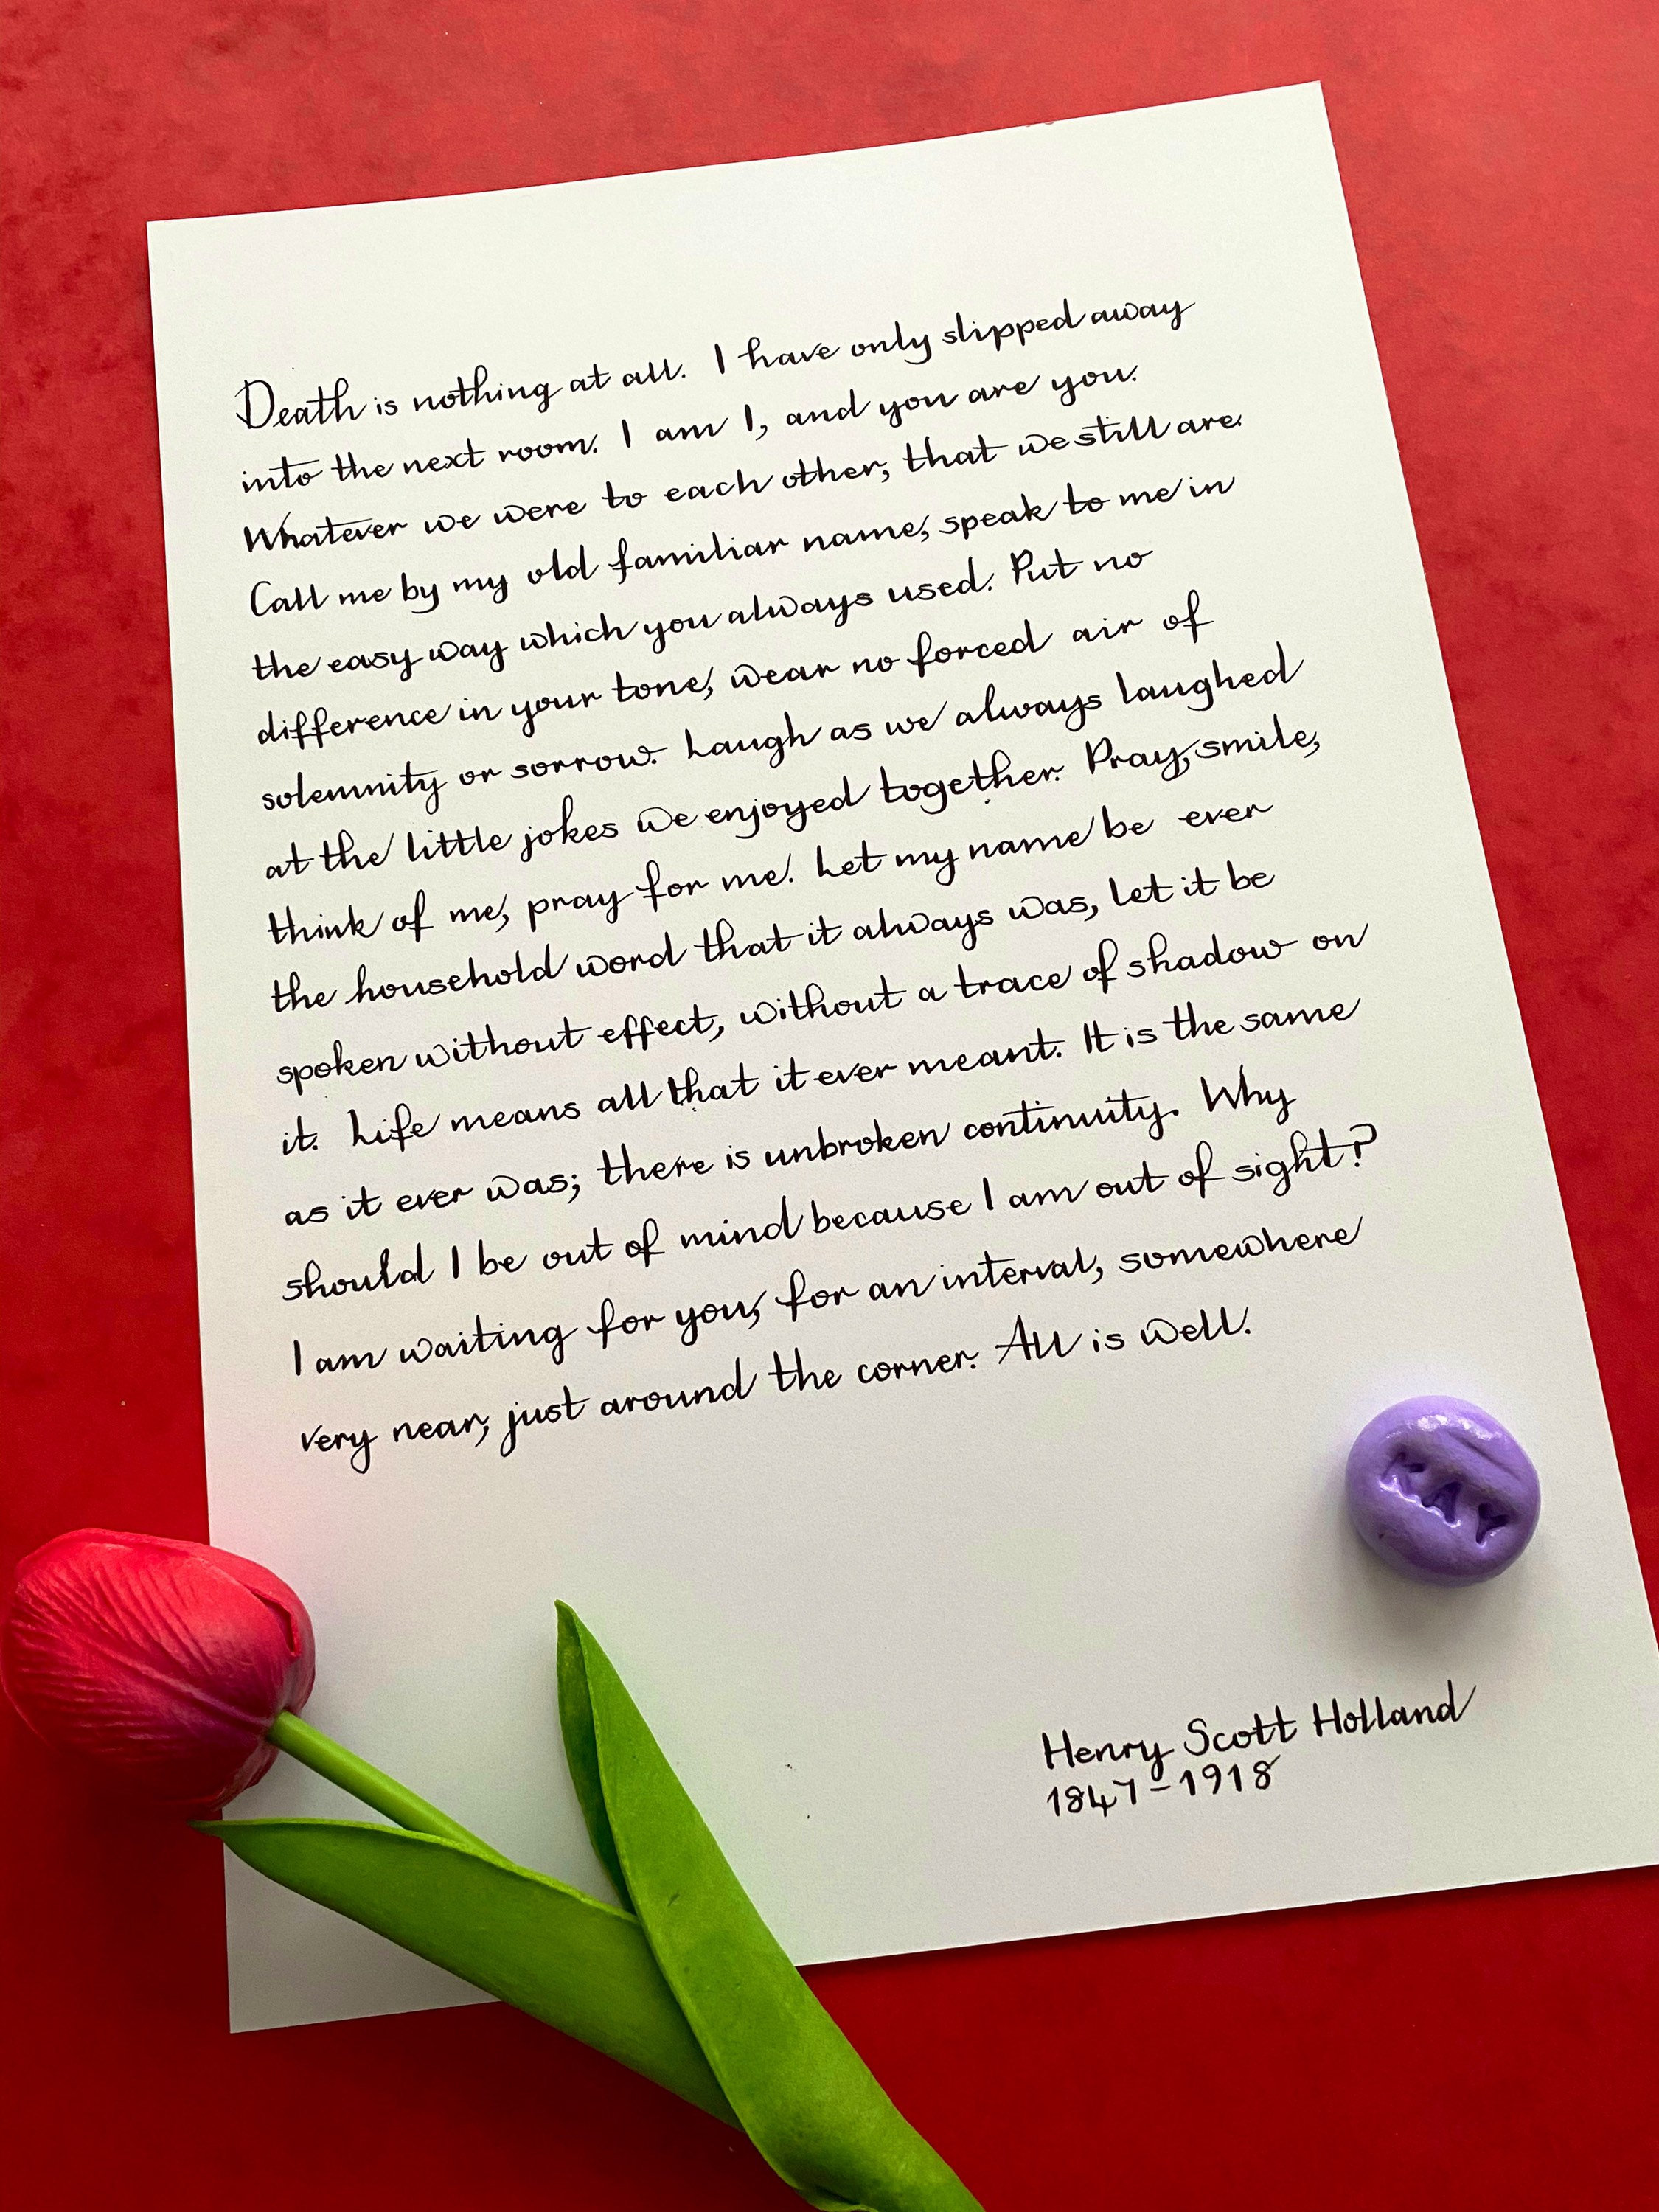 Death is nothing at all. I have only slipped away
into the next room. I am I, and you are you.
Whatever we were to each other, that we still are.
Call me by my old familiar name, speak to me in
the easy way which you always used. Put no
difference in your tone, wear no forced air of
solemnity or sorrow. Laugh as we always laughed
at the little jokes we enjoyed together. Pray, smile,
think of me, pray for me. Let my name be ever
the household word that it always was, let it be
spoken without effect, without a trace of shadow on
it. Life means all that it ever meant. It is the same
as it ever was; there is unbroken continuity. Why
should I be out of mind because I am out of sight?
I am waiting for you, for an interval, somewhere
very near, just around the corner. All is well.
KAY
Henry Scott Holland
1847-1918